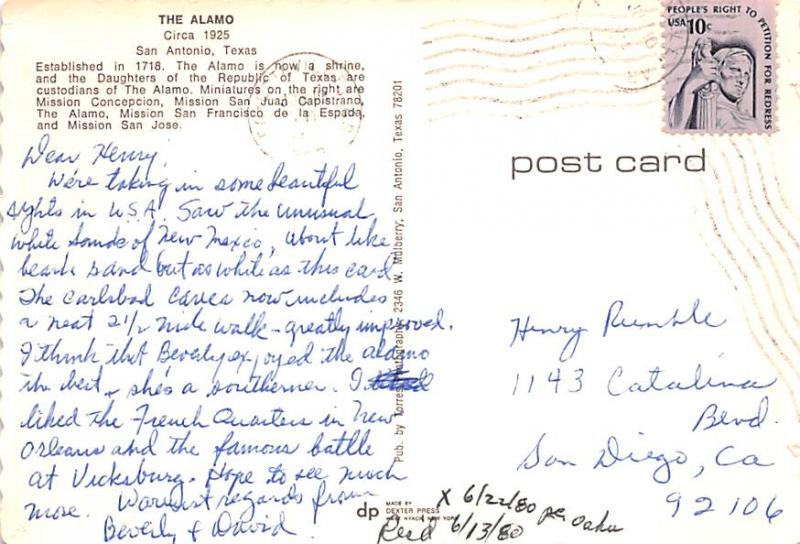 THE ALAMO
Circa 1925
San Antonio, Texas
Established in 1718. The Alamo is now a shrine,
and the Daughters of the Republic of Texas are
custodians of The Alamo. Miniatures on the right are
Mission Concepcion, Mission San Juan Capistrano,
The Alamo, Mission San Francisco de la Espada,
and Mission San Jose.
Dear Henry,
We're taking in some beautiful
sights in U.S.A. Saw the unusual
white sands of New Mexico, about like
beach sand but as white as this card.
The Carlsbad Caves now includes
a neat 2 1/2 mile walk - greatly improved.
I think that Beverly enjoyed the Alamo
the best - she's a southerner. I
liked the French Quarters in New
Orleans and the famous battle
at Vicksburg. Hope to see much
more. Warmest regards from
Beverly & David
Pub. by Torres Photographic 2346 W. Mulberry, San Antonio, Texas 78201
PEOPLE'S RIGHT TO PETITION FOR REDRESS
USA 10c
post card
Henry Rumble
1143 Catalina
Blvd.
San Diego, Ca
92106
dp
MADE BY
DEXTER PRESS
WEST NYACK, NEW YORK
X 6/22/80 per
Recd 6/13/80